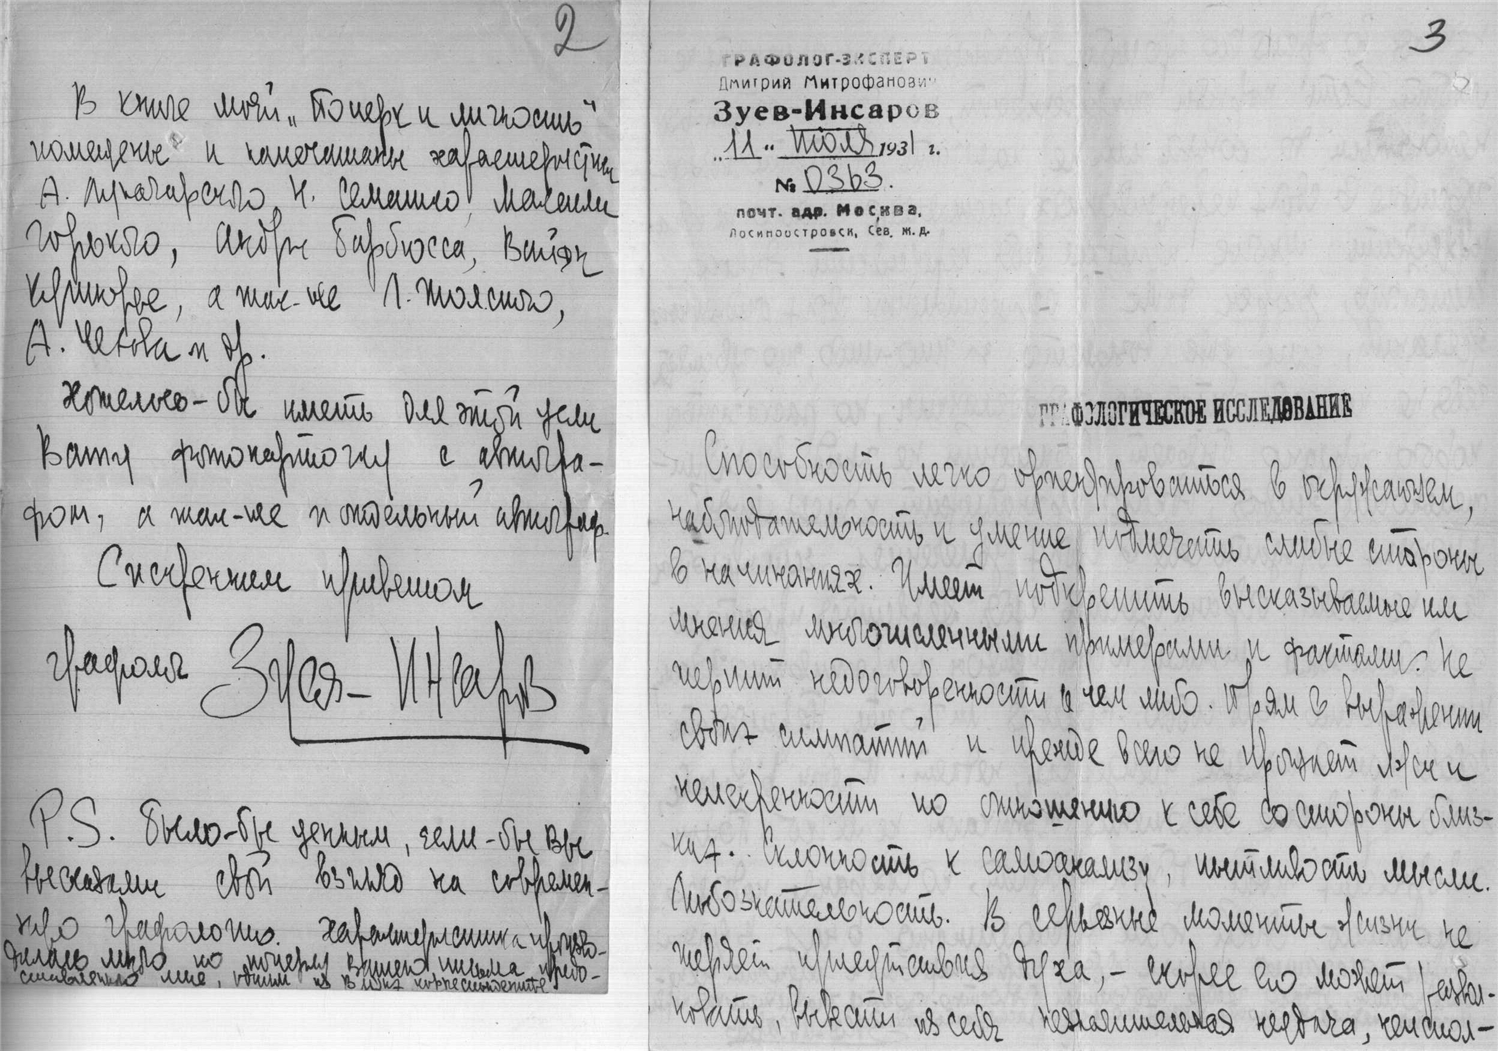 2
В книге моей „Почерк и личность"
помещены и напечатаны характеристики
А. Луначарского, Н. Семашко, Максима
Горького, Андри Барбюсса, Вайян
Кутюрье, а так-же Л. Толстого,
А. Чехова и др.
Хотелось-бы иметь для этой цели
Вашу фотокарточку с автогра-
фом, а так-же и отдельный автограф.
С искренним приветом
графолог Зуев-Инсаров
P.S. Было-бы ценным, если-бы Вы
высказали свой взгляд на современ-
ную графологию. Характеристика произво-
дилась мною по почерку Вашего письма, предо-
ставленного мне, одним из Ваших корреспондентов
3
ГРАФОЛОГ-ЭКСПЕРТ
Дмитрий Митрофанович
Зуев-Инсаров
„11" Июля 1931 г.
№ 0363.
почт. адр. Москва,
Лосиноостровск, Сев. ж. д.
ГРАФОЛОГИЧЕСКОЕ ИССЛЕДОВАНИЕ
Способность легко ориентироваться в окружающем,
наблюдательность и умение подмечать слабые стороны
в начинаниях. Умеет подкрепить высказываемые им
мнения многочисленными примерами и фактами. Не
терпит недоговоренности в чем либо. Прям в выражении
своих симпатий и прежде всего не прощает лжи и
неискренности по отношению к себе со стороны близ-
ких. Склонность к самоанализу, пытливость мысли.
Любознательность. В серьезные моменты жизни не
теряет присутствия духа, – скорее его может взвол-
новать, вывести из себя незначительная неудача, неиспол-